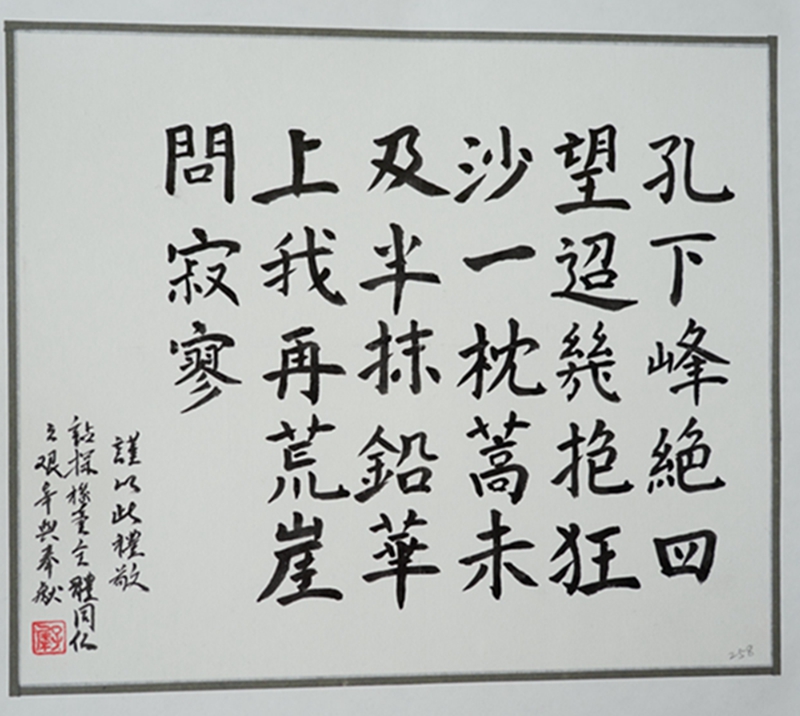 孔下峰絕四
望迢幾抱狂
沙一枕蒿未
及半抹鉛華
上我再荒崖
問寂寥
謹以此禮敬
鉆探檢查全體同仁
之艱辛與奉獻
258